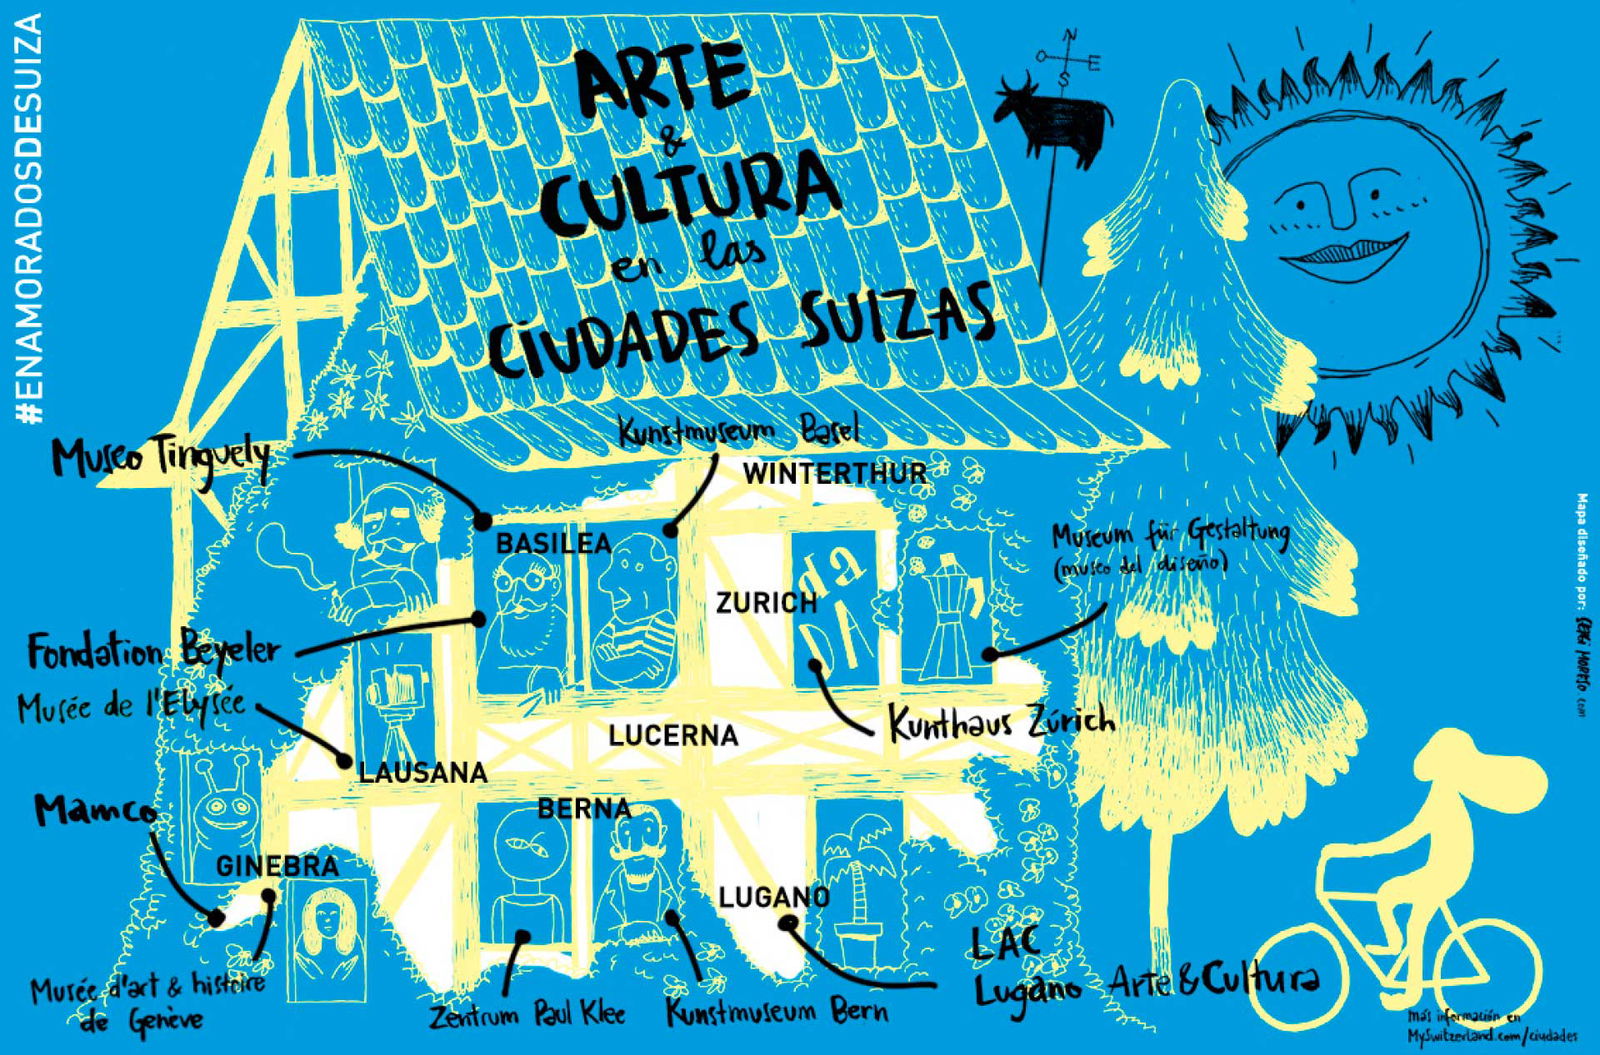 #ENAMORADOSDESUIZA
ARTE
&
CULTURA
en las
CIUDADES SUIZAS
N
O E
S
Museo Tinguely
Kunstmuseum Basel
WINTERTHUR
BASILEA
Museum für Gestaltung
(museo del diseño)
da
DA
ZURICH
Fondation Beyeler
Musée de l'Elysée
Kunthaus Zúrich
LUCERNA
LAUSANA
Mamco
BERNA
GINEBRA
LUGANO
LAC
Lugano Arte & Cultura
Musée d'art & histoire
de Genève
Zentrum Paul Klee
Kunstmuseum Bern
más información en
MySwitzerland.com/ciudades
Mapa diseñado por: SERGI MORESO.com